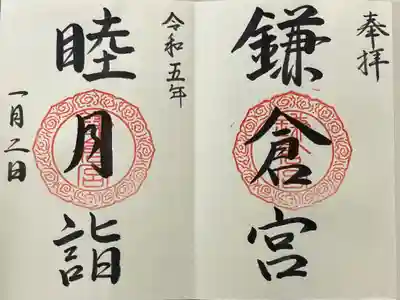 奉拝
鎌倉宮
令和五年
睦月詣
一月二日